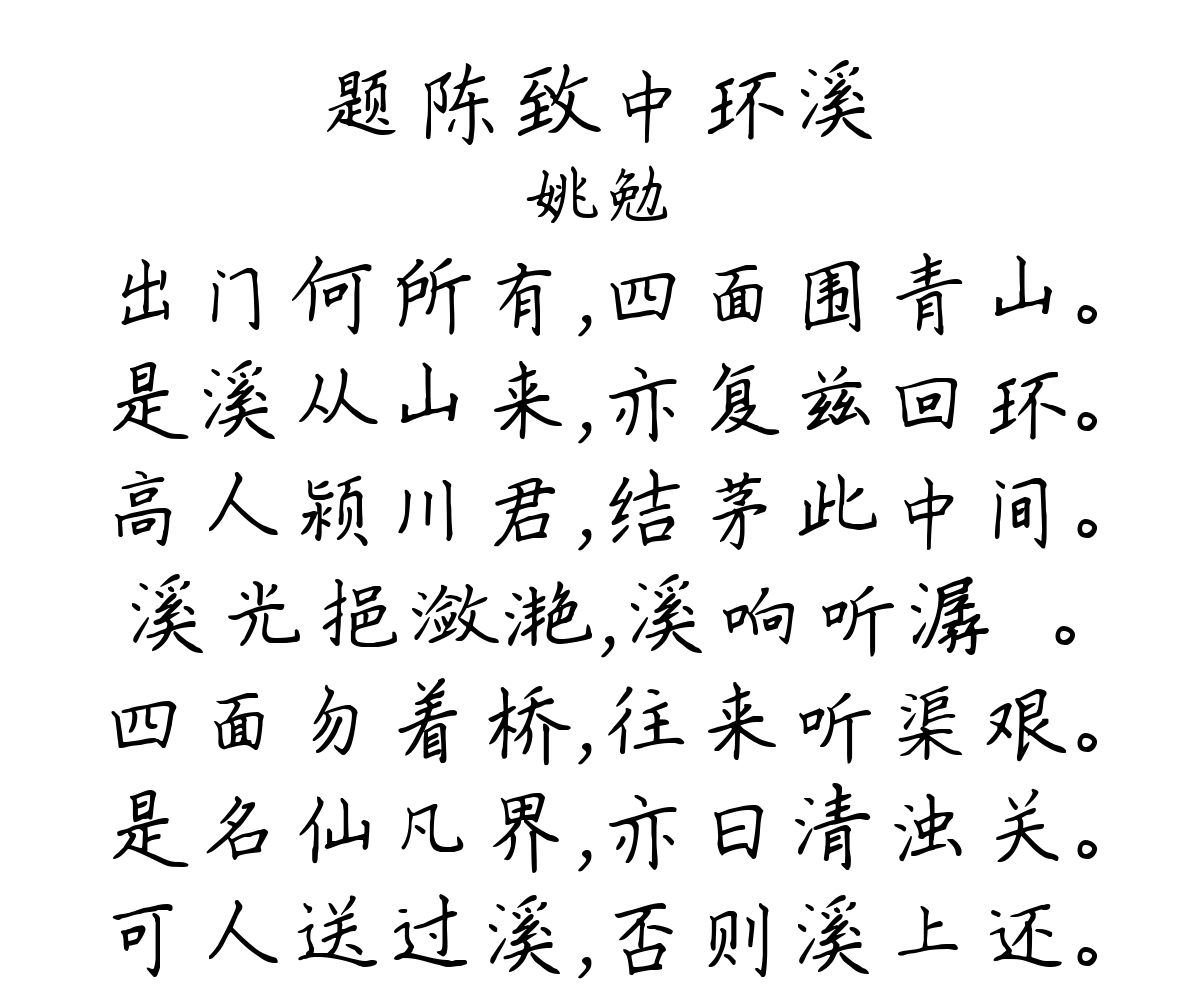 题陈致中环溪
姚勉
出门何所有,四面围青山。
是溪从山来,亦复兹回环。
高人颍川君,结茅此中间。
溪光挹潋滟,溪响听潺 。
四面勿着桥,往来听渠艰。
是名仙凡界,亦曰清浊关。
可人送过溪,否则溪上还。